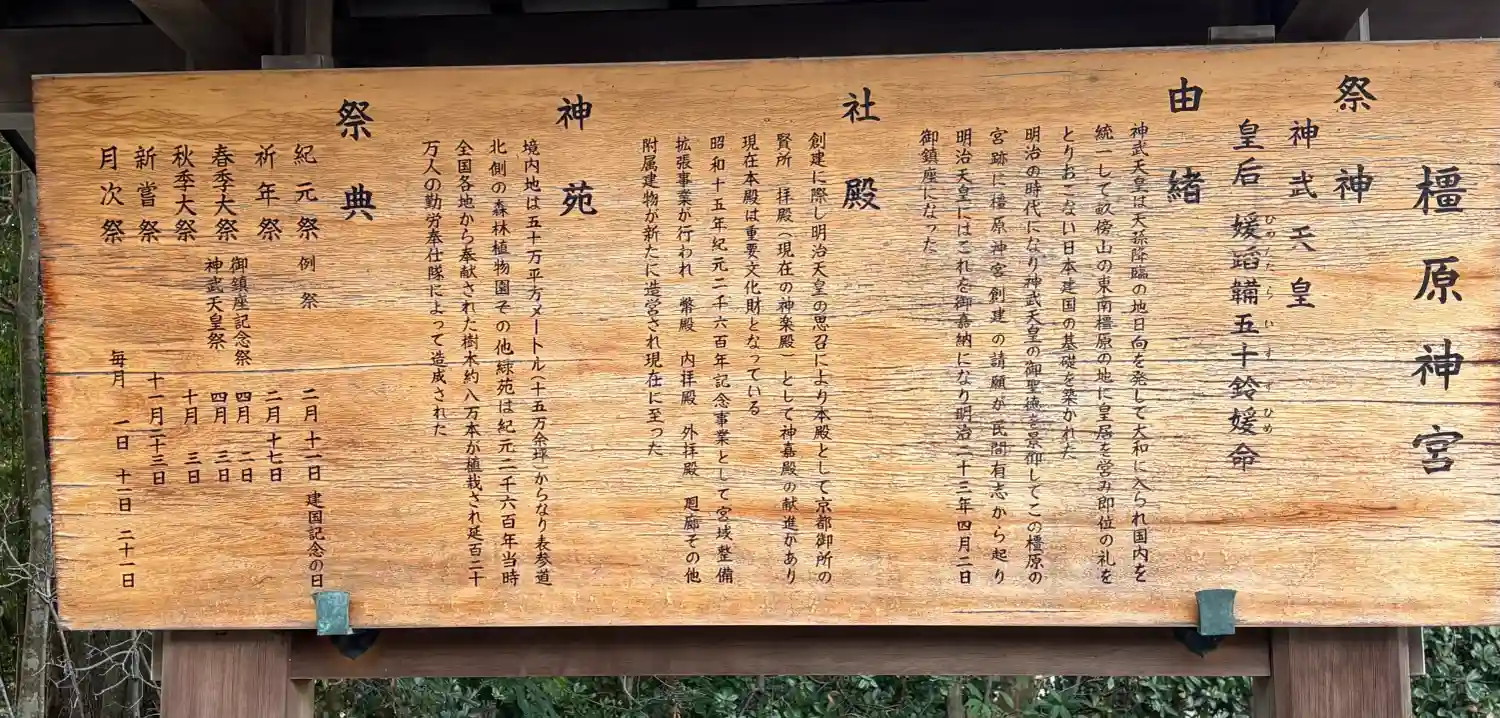 橿原神宮
祭神
神武天皇
皇后 媛蹈韛五十鈴媛命
ひめたたら いすずひめ
由緒
神武天皇は天孫降臨の地日向を発して大和に入られ国内を
統一して畝傍山の東南橿原の地に皇居を営み即位の礼を
とりおこない日本建国の基礎を築かれた
明治の時代になり神武天皇の御聖徳を景仰してこの橿原の
宮跡に橿原神宮創建の請願が民間有志から起り
明治天皇にはこれを御嘉納になり明治二十三年四月二日
御鎮座になった
社殿
創建に際し明治天皇の思召により本殿として京都御所の
賢所 拝殿(現在の神楽殿)として神嘉殿の献進があり
現在本殿は重要文化財となっている
昭和十五年紀元二千六百年記念事業として宮域整備
拡張事業が行われ 幣殿 内拝殿 外拝殿 廻廊その他
附属建物が新たに造営され現在に至った
神苑
境内地は五十万平方メートル(十五万余坪)からなり表参道
北側の森林植物園その他緑苑は紀元二千六百年当時
全国各地から奉献された樹木約八万本が植栽され延百二十
万人の勤労奉仕隊によって造成された
祭典
紀元祭 例祭 二月十一日 建国記念の日
祈年祭 二月十七日
春季大祭 御鎮座記念祭 四月二日
神武天皇祭 四月三日
秋季大祭 十月三日
新嘗祭 十一月二十三日
月次祭 毎月 一日 十一日 二十一日